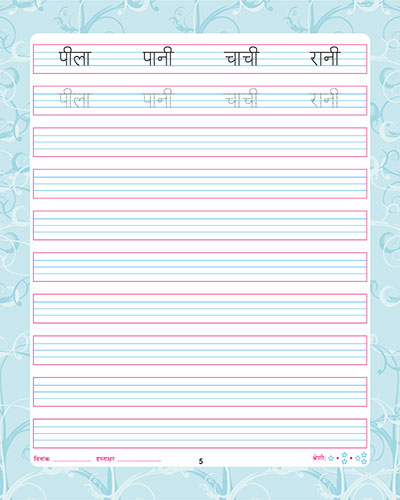 पीला पानी चाची रानी
पीला पानी चाची रानी
दिनांक ................... हस्ताक्षर ..................... 5 श्रेणी: